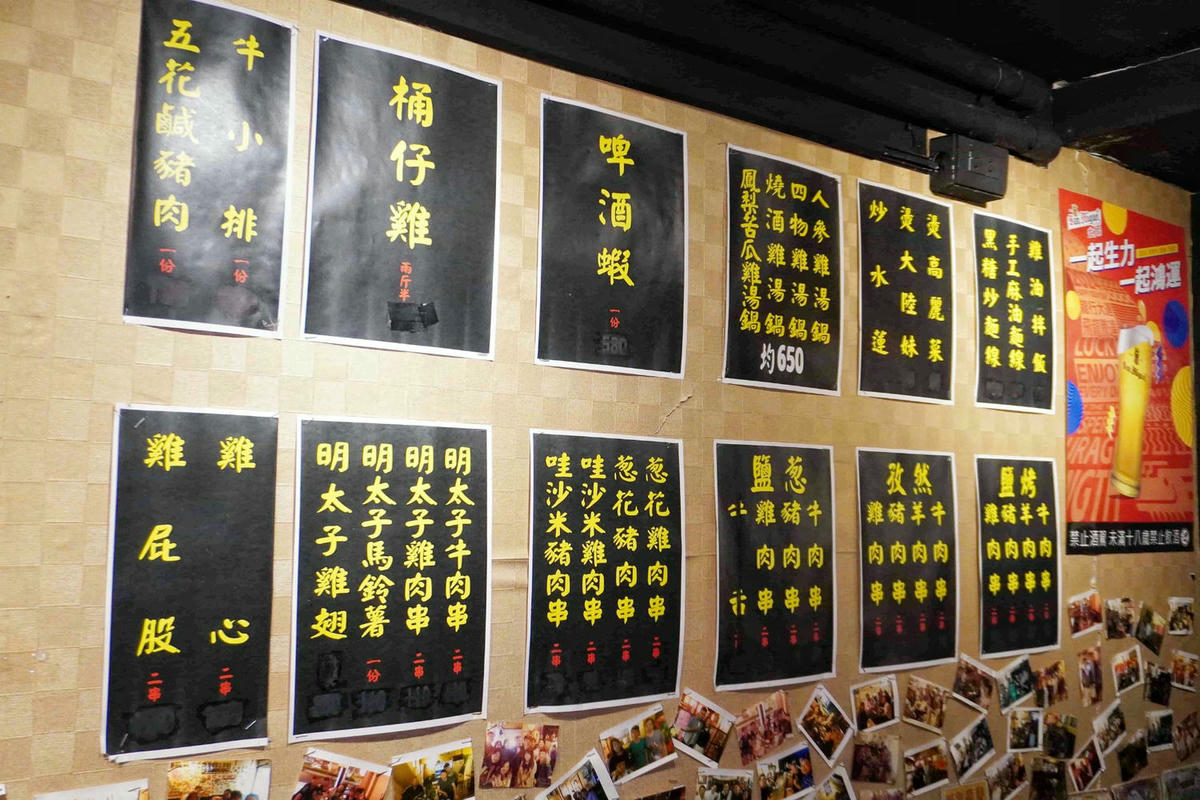 牛小排 一份
五花鹹豬肉 一份
桶仔雞 兩斤半
啤酒蝦 一份
580
人參雞湯鍋
四物雞湯鍋
燒酒雞湯鍋
鳳梨苦瓜雞湯鍋
均650
燙高麗菜
燙大陸妹
炒水蓮
雞油拌飯
手工麻油麵線
黑糖炒麵線
一起生力
一起鴻運
禁止酒駕 未滿十八歲禁止飲酒
雞心 二串
雞屁股 二串
明太子牛肉串 二串
明太子雞肉串 二串
明太子馬鈴薯 一份
明太子雞翅
葱花雞肉串 二串
葱花豬肉串 二串
哇沙米雞肉串 二串
哇沙米豬肉串 二串
鹽葱
牛肉串 二串
豬肉串 二串
雞肉串 二串
孜然
牛肉串 二串
羊肉串 二串
豬肉串 二串
雞肉串 二串
鹽烤
牛肉串 二串
羊肉串 二串
豬肉串 二串
雞肉串 二串